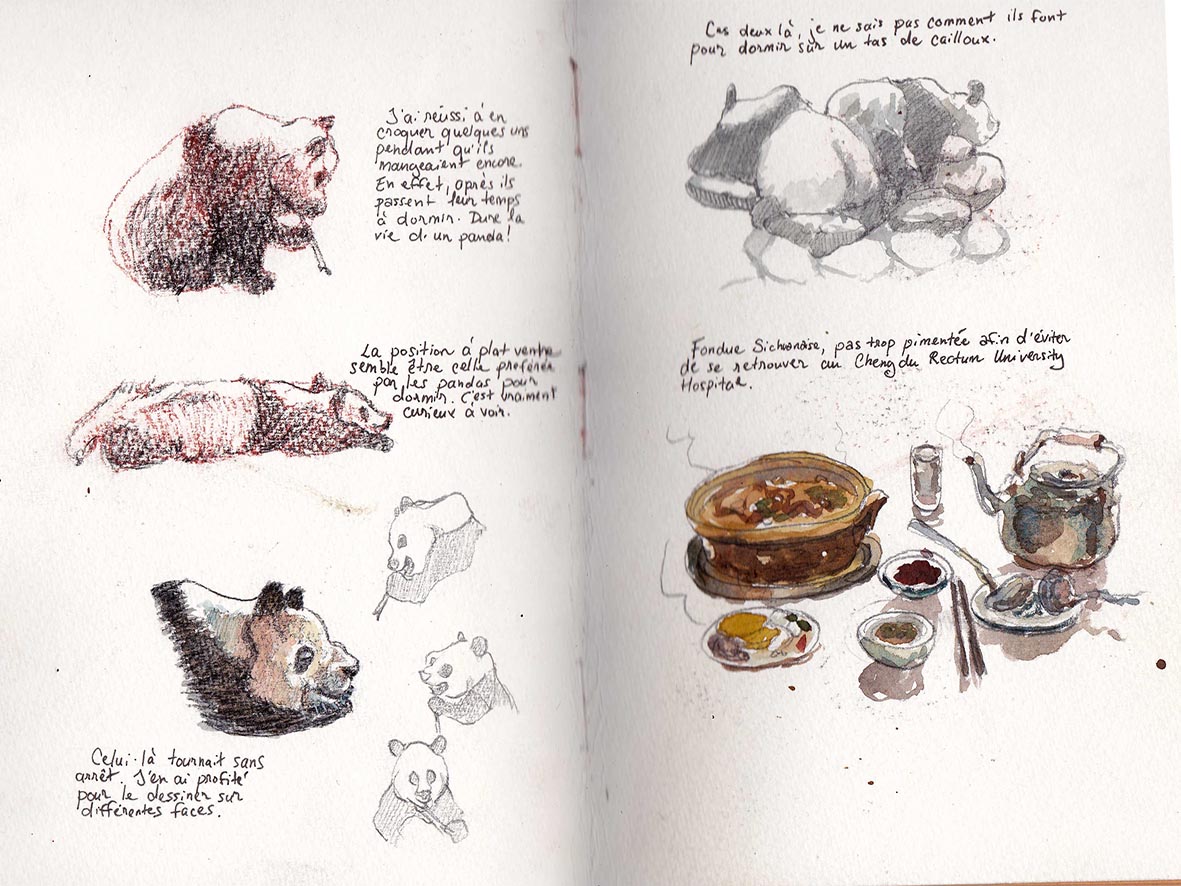 J'ai réussi à en
croquer quelques uns
pendant qu'ils
mangeaient encore.
En effet, après ils
passent leur temps
à dormir. Dure la
vie d'un panda!
La position à plat ventre
semble être celle préférée
par les pandas pour
dormir. C'est vraiment
curieux à voir.
Celui-là tournait sans
arrêt. J'en ai profité
pour le dessiner sur
différentes faces.
Ces deux là, je ne sais pas comment ils font
pour dormir sur un tas de cailloux.
Fondue Sichuanaise, pas trop pimentée afin d'éviter
de se retrouver au Chengdu Rectum University
Hospital.